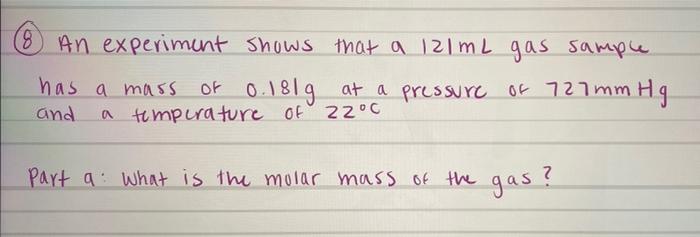 8 An experiment shows that a 121mL gas sample
has a mass of 0.181g at a pressure of 727mmHg
and a temperature of 22°C
Part a: What is the molar mass of the gas?